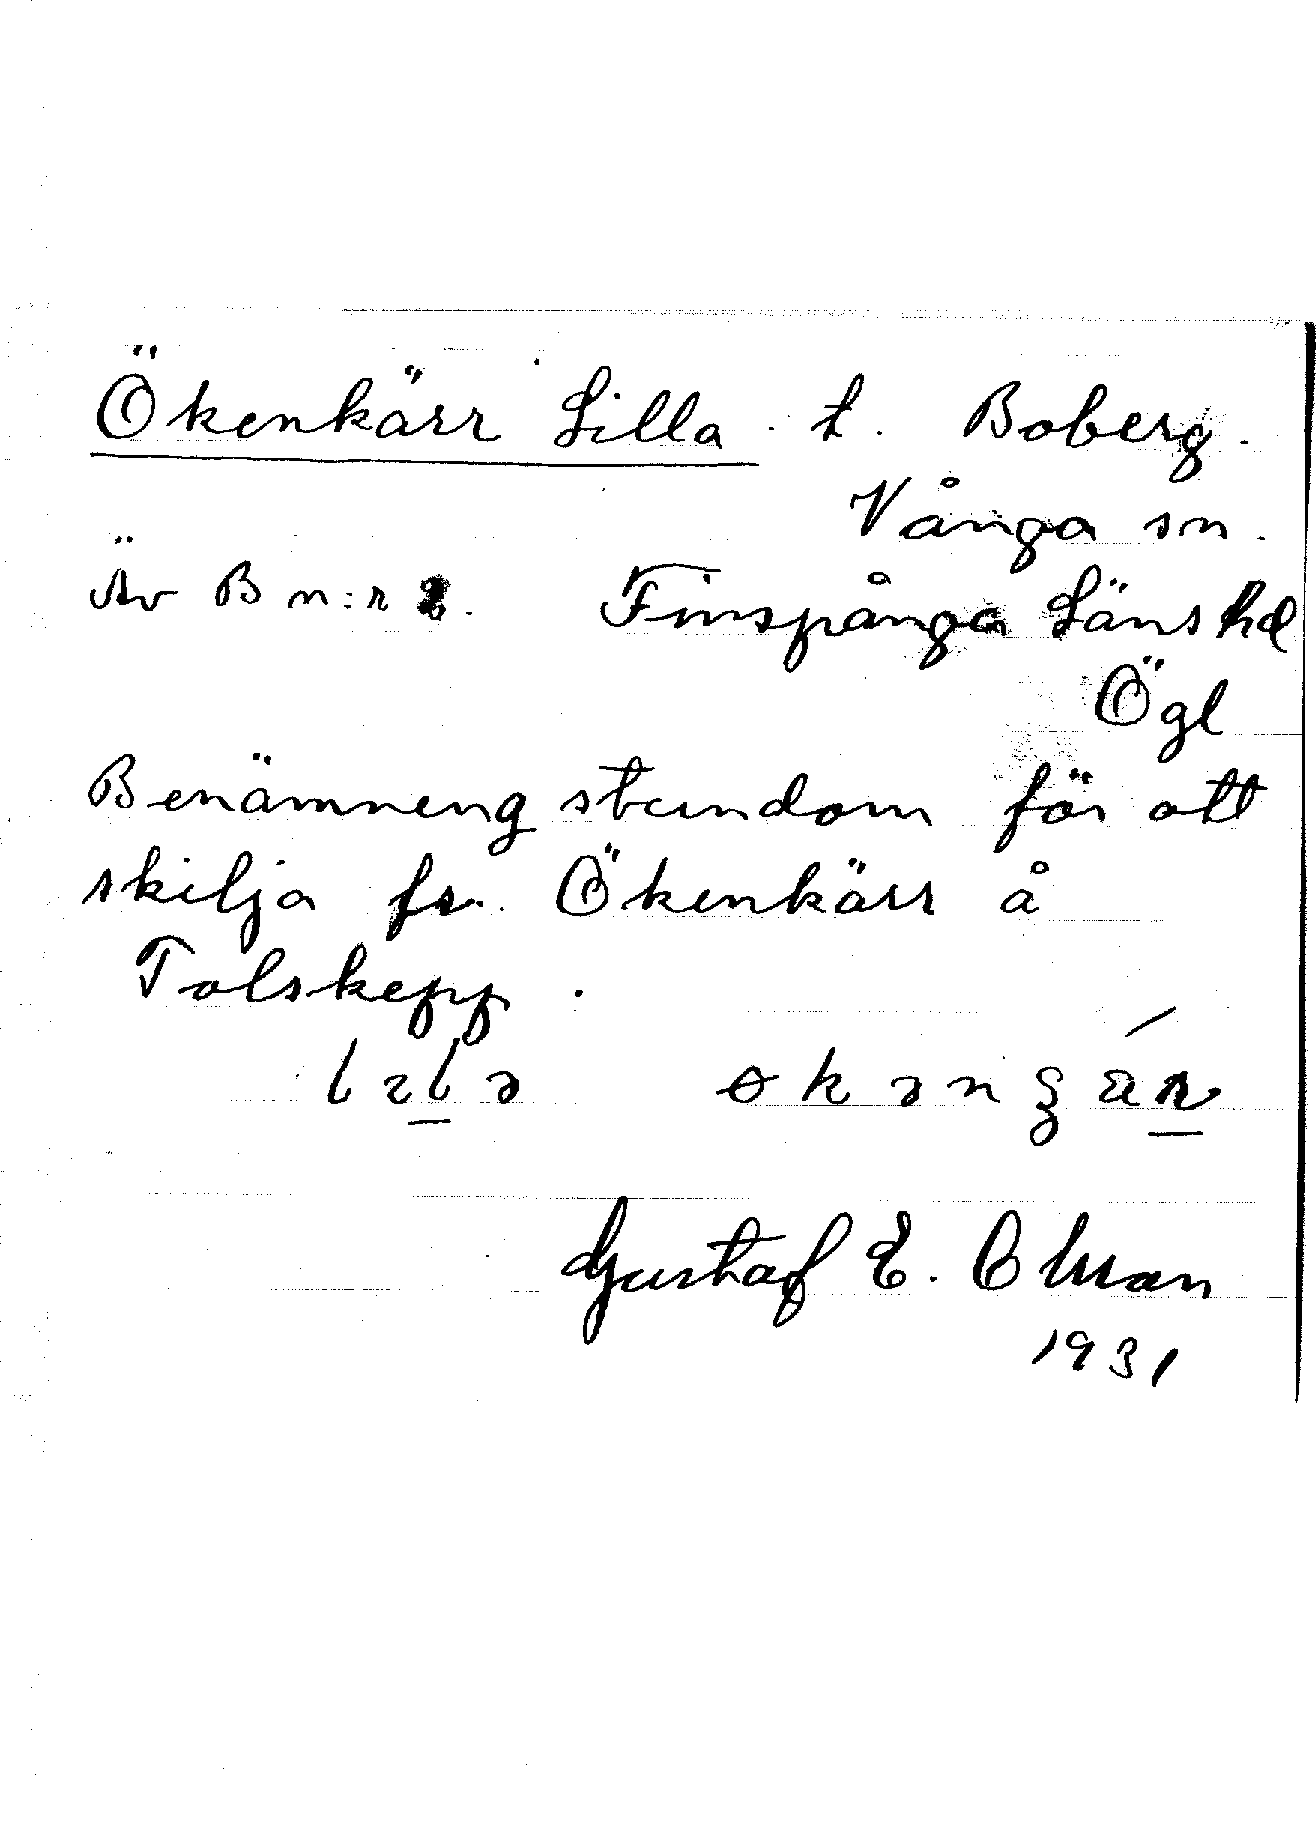 Ökenkärr Lilla t. Boberg.
Vånga sn.
Äv B n:r 2. Finspånga Länshd
Ögl
Benämneng stundom för att
skilja fr. Ökenkärr å
Tolskepp.
Gustaf E. Olman
1931